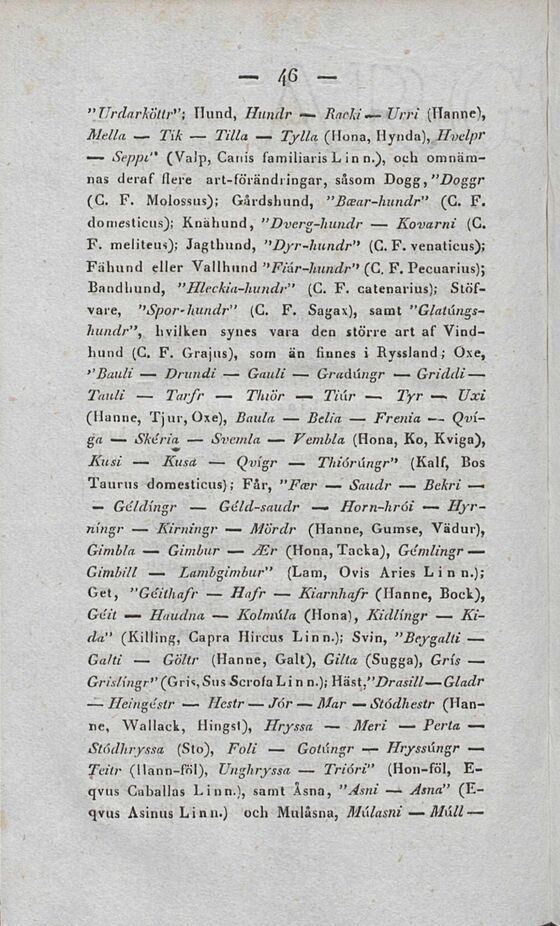 — 46 —
"Urdarköttr"; Hund, Hundr — Racki — Urri (Hanne),
Mella — Tik — Tilla — Tylla (Hona, Hynda), Hvelpr
— Seppi" (Valp, Canis familiaris Linn.), och omnäm-
nas deraf flere art-förändringar, såsom Dogg, "Doggr
(C. F. Molossus); Gårdshund, "Bæar-hundr" (C. F.
domesticus); Knähund, "Dverg-hundr — Kovarni (C.
F. meliteus); Jagthund, "Dyr-hundr" (C. F. venaticus);
Fähund eller Vallhund "Fiár-hundr" (C. F. Pecuarius);
Bandhund, "Hleckia-hundr" (C. F. catenarius); Stöf-
vare, "Spor-hundr" (C. F. Sagax), samt "Glatúngs-
hundr", hvilken synes vara den större art af Vind-
hund (C. F. Grajus), som än finnes i Ryssland; Oxe,
"Bauli — Drundi — Gauli — Gradúngr — Griddi —
Tauli — Tarfr — Thiör — Tiúr — Tyr — Uxi
(Hanne, Tjur, Oxe), Baula — Belia — Frenia — Qví-
ga — Skéria — Svemla — Vembla (Hona, Ko, Kviga),
Kusi — Kusa — Qvígr — Thiórúngr" (Kalf, Bos
Taurus domesticus); Får, "Fær — Saudr — Bekri —
— Géldíngr — Géld-saudr — Horn-hrói — Hyr-
níngr — Kirningr — Mördr (Hanne, Gumse, Vädur),
Gimbla — Gimbur — Ær (Hona, Tacka), Gémlingr —
Gimbill — Lambgimbur" (Lam, Ovis Aries Linn.);
Get, "Géithafr — Hafr — Kiarnhafr (Hanne, Bock),
Géit — Haudna — Kolmúla (Hona), Kidlíngr — Ki-
da" (Killing, Capra Hircus Linn.); Svin, "Beygalti —
Galti — Göltr (Hanne, Galt), Gilta (Sugga), Grís —
Gríslíngr" (Gris, Sus Scrofa Linn.); Häst, "Drasill — Gladr
— Heingéstr — Hestr — Jór — Mar — Stódhestr (Han-
ne, Wallack, Hingst), Hryssa — Meri — Perta —
Stódhryssa (Sto), Foli — Gotúngr — Hryssúngr —
Teitr (Hann-föl), Unghryssa — Trióri" (Hon-föl, E-
qvus Caballas Linn.), samt Åsna, "Asni — Asna" (E-
qvus Asinus Linn.) och Mulåsna, Múlasni — Múll —